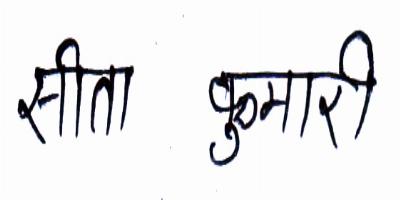 सीता कुमारी